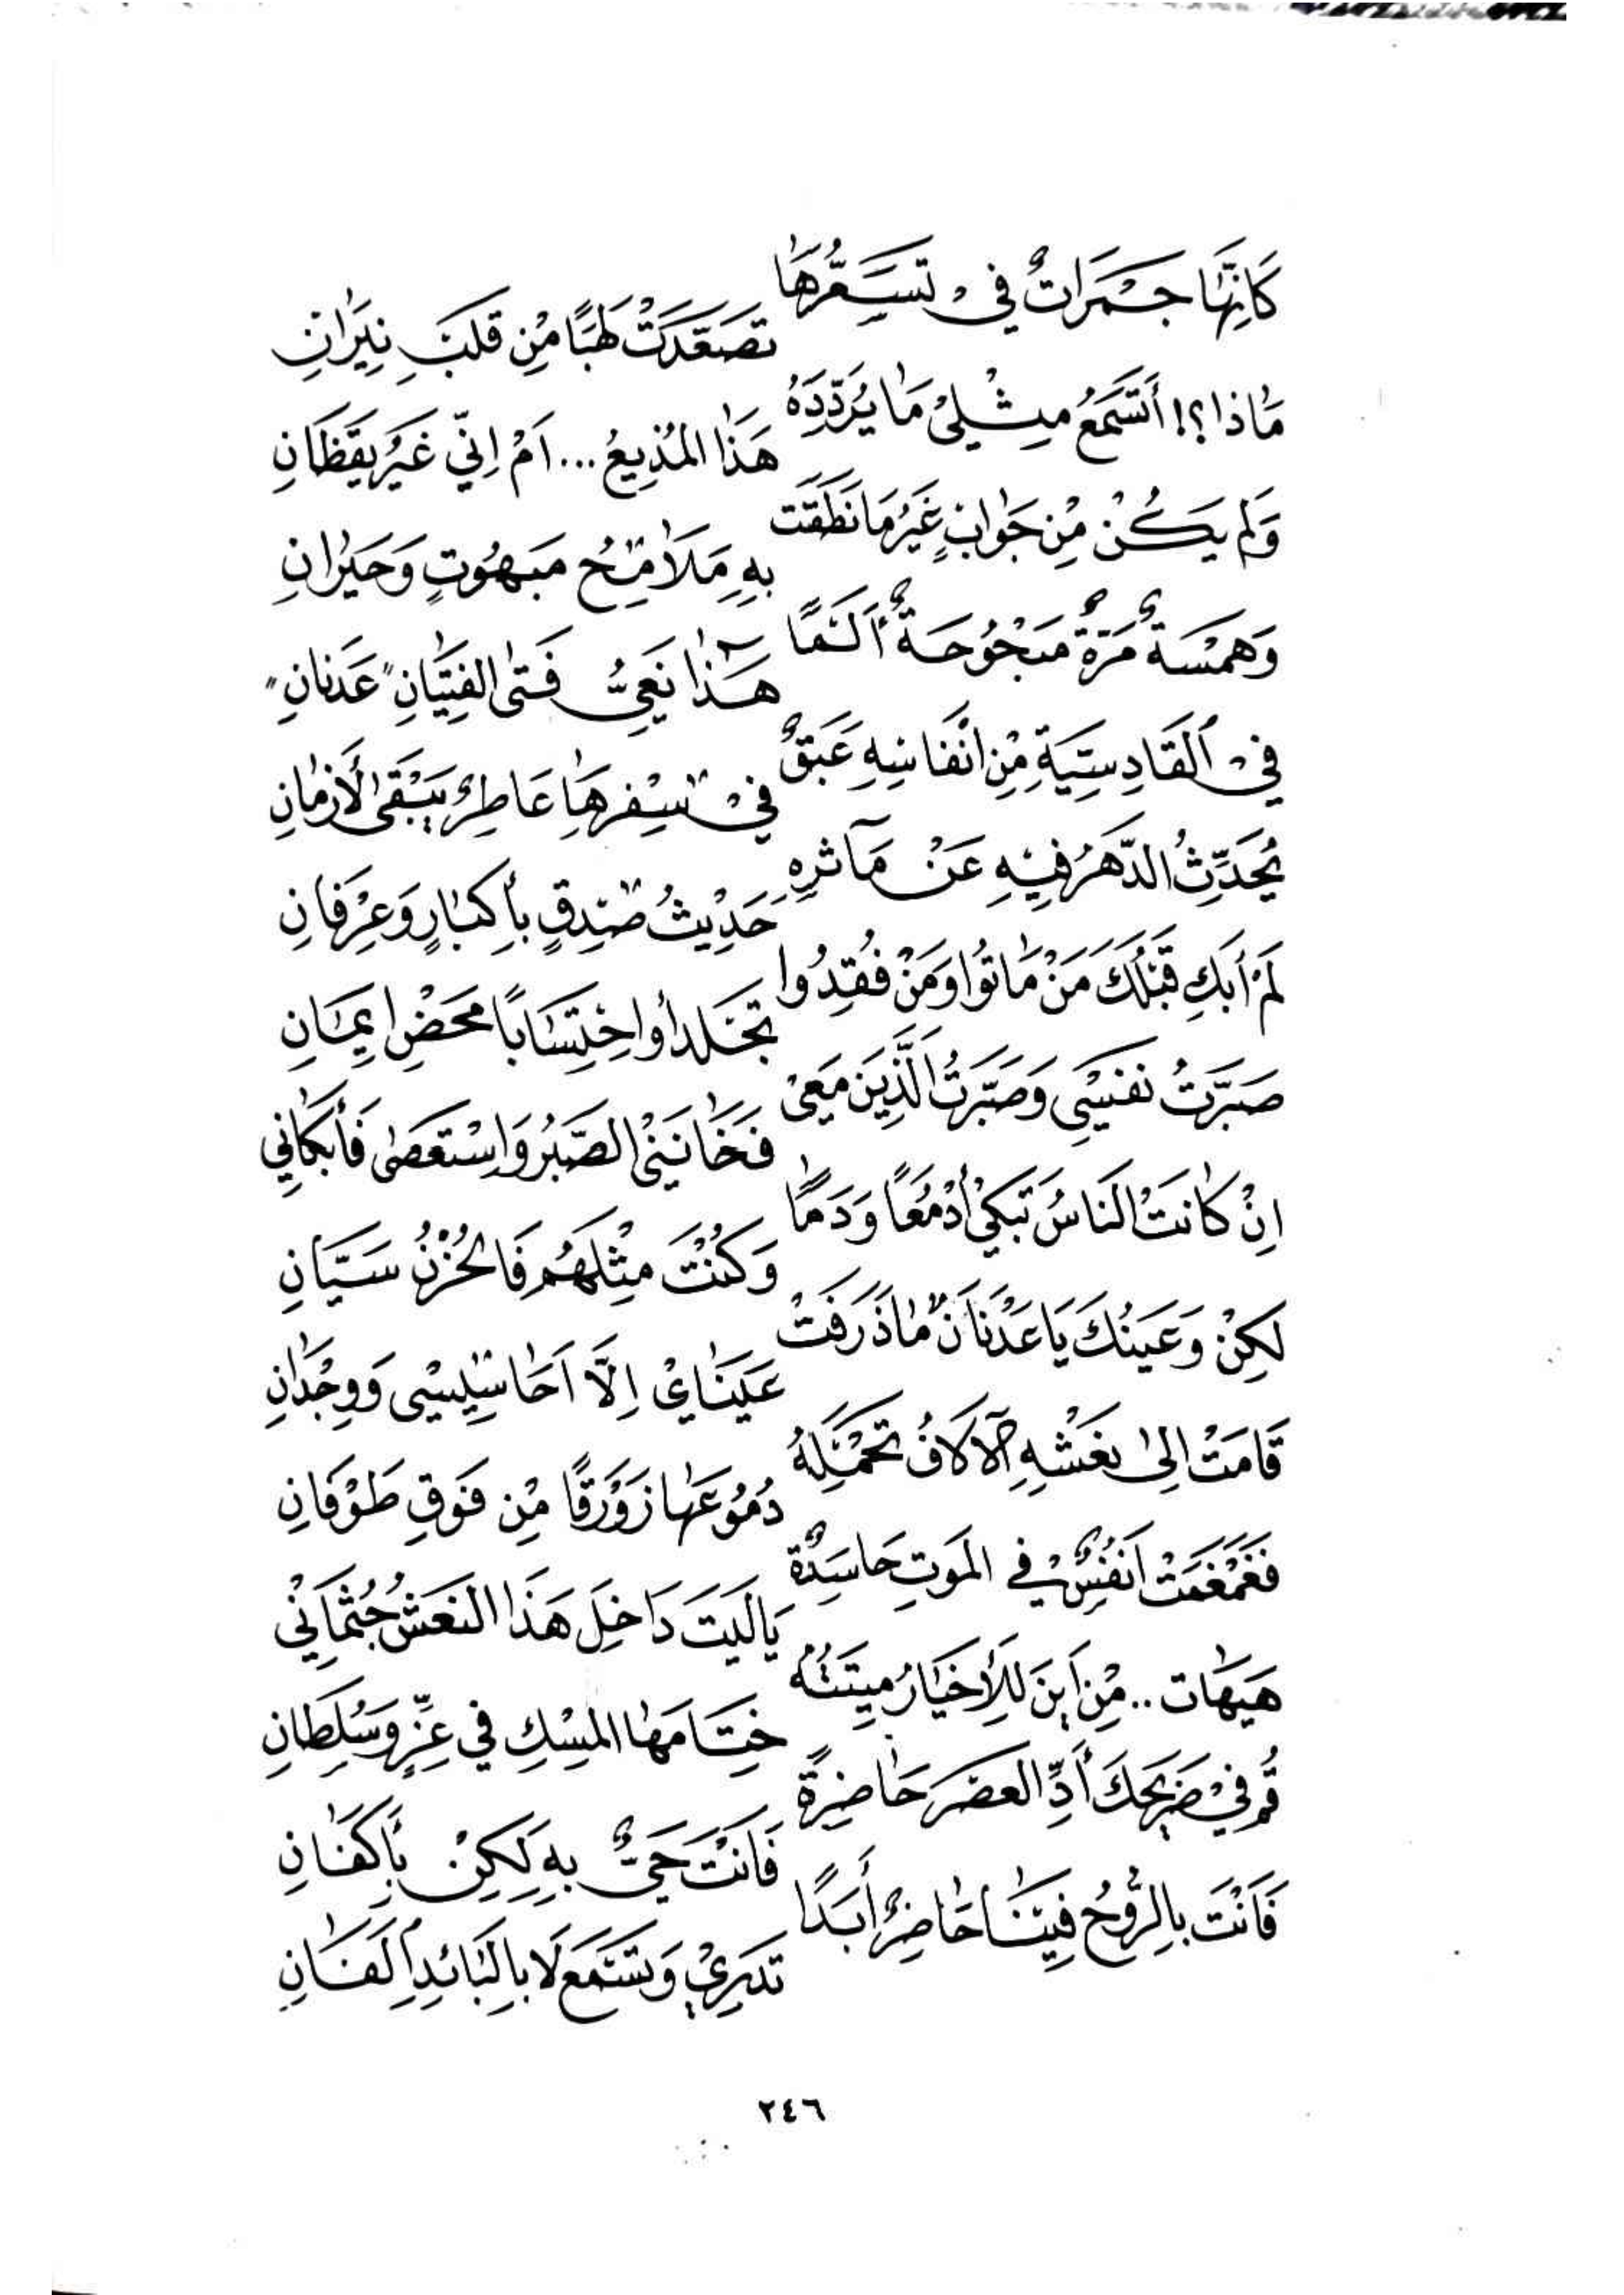 كَأَنَّهَا جَمَرَاتٌ فِيْ تَسَعُّرِهَا
تَصَعَّدَتْ لَهَبًا مِنْ قَلْبِ نِيْرَانِ
مَاذا؟! أَتَسْمَعُ مِثْلِيْ مَا يُرَدِّدُهُ
هَذَا المُذِيعُ... اَمْ اِنِّي غَيْرُ يَقْظَانِ
وَلَمْ يَكُنْ مِنْ جَوَابٍ غَيْرُ مَا نَطَقَت
بِهِ مَلَامِحُ مَبْهُوتٍ وَحَيْرَانِ
وَهَمْسَةٌ مُرَّةٌ مَبْحُوحَةٌ أَلَمًا
هَذَا نَعِيُّ فَتَى الفِتْيَانِ "عَدْنَانِ"
فِيْ اْلقَادِسِيَّةِ مِنْ اَنْفَاسِهِ عَبَقٌ
فِيْ سِفْرِهَا عَاطِرٌ يَبْقَى لأَزْمَانِ
يُحَدِّثُ الدَّهْرُ فِيْهِ عَنْ مَآثرِهِ
حَدِيْثُ صِدِقٍ بأِكبَارٍ وَعِرْفَانِ
لَمْ أبكِ قَبْلُكَ مَنْ مَاتوُا وَمَنْ فُقِدُوا
تجَلداً واحْتِسَابًا مَحَضْ اِيمَانِ
صَبَّرَتُ نفسِيْ وَصَبَّرَتُ الَّذِيَنَ مَعِيْ
فَخَانَنِيْ الصَّبْرُ وَاسْتَعصَى فَأبكَانِي
اِنْ كَانَتْ النَاسُ تَبكِيْ أدْمُعَاً وَدَمًا
وَكُنْتَ مِثْلَهُم فَالحُزْنُ سَيَّانِ
لكِنْ وَعَينُكَ يَا عَدْنَانَ مَاذَرَفَتْ
عَينَايْ اِلَّا اَحَاسِيسِي وَوِجْدَانِ
قَامَتْ اِلىَ نَعَشْهِ الآلافُ تَحْمِلُهُ
دُمُوعَهَا زَوْرَقًا مِنْ فَوقِ طَوْفَانِ
فَغَمْغَمَتْ اَنفُسٌ في المَوتِ حَاسِدَةٌ
يَالَيَتَ دَاخِلَ هَذَا النَعَشْ جُثْمَانِيْ
هَيَهَات.. مِنْ اَينَ لِلأَخيَارُ مِيتَتُهُ
خِتَامَهَا المِسْكِ في عِزٍّ وَسُلطَانِ
قُم فيْ ضَرِيحكَ أَدِّ العَصْرَ حَاضِرَةً
فَاَنْتَ حَيٌّ بِهِ لَكِنْ بأِكفَانِ
فَاَنْتَ بالِرُّوحْ فِينَا حَاضِرٌ أَبَدًا
تَدرِيْ وَتسْتَمعَ لَا بِالبَائدِ اْلفَانِ
٢٤٦